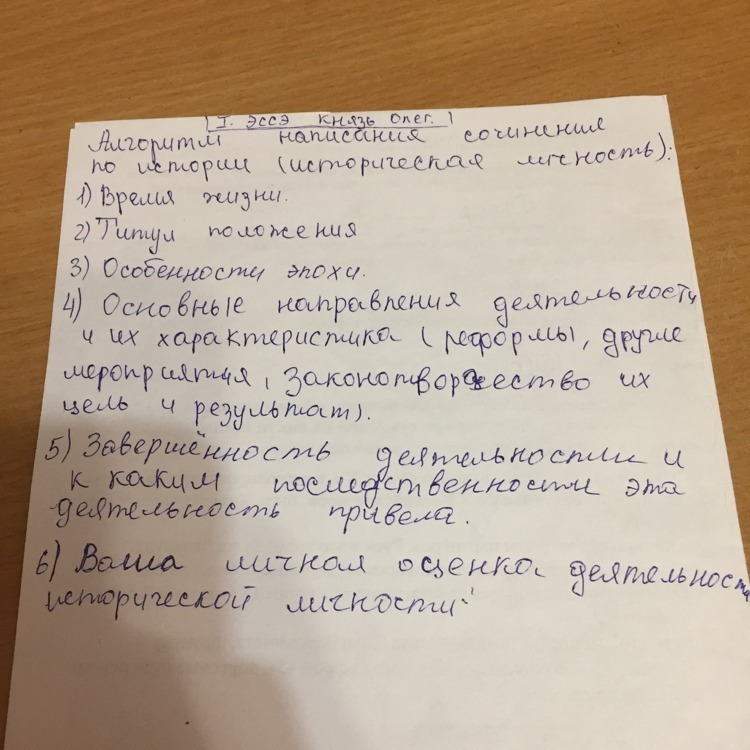 I. ЭССЭ КНЯЗЬ ОЛЕГ.
Алгоритм написания сочинения
по истории (историческая личность):
1) Время жизни.
2) Титул положения
3) Особенности эпохи.
4) Основные направления деятельности
и их характеристика (реформы, другие
мероприятия, законотворчество их
цель и результат).
5) Завершённость деятельности и
к каким последственности эта
деятельность привела.
6) Ваша личная оценка деятельности
исторической личности.